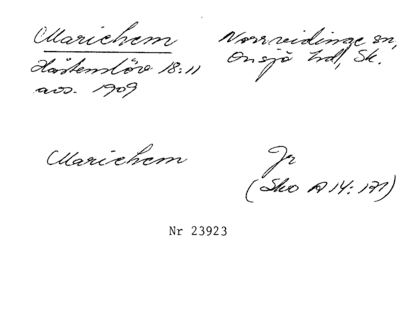 Marichem Norrvidinge sn,
Hästenslöv 18:11 Onsjö hd, Sk.
avs. 1909
Marichem Jr
(Sko A 14: 171)
Nr 23923